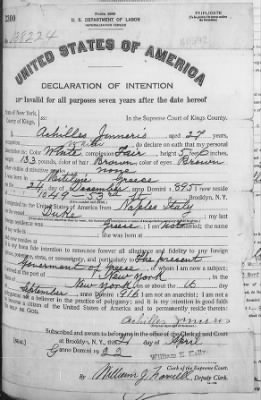 TRIPLICATE
U. S. DEPARTMENT OF LABOR
UNITED STATES OF AMERICA
DECLARATION OF INTENTION
Invalid for all purposes seven years after the date hereof
State of New York,
County of Kings,
In the Supreme Court of Kings County.
I, Achilles Jenneris aged 27 years,
occupation do declare on oath that my personal
description is: Color White, complexion Fair, height 5 feet 6 inches,
weight 133 pounds, color of hair Brown, color of eyes Brown
other visible distinctive marks none
I was born in Greece
on the 24 day of December, anno Domini 1895; I now reside
at 849-53rd St, Brooklyn, N.Y.
I emigrated to the United States of America from Naples Italy
on the vessel Duke my last
foreign residence was Greece; I am not married; the name
of my is ; she was born at
It is my bona fide intention to renounce forever all allegiance and fidelity to any foreign
prince, potentate, state, or sovereignty, and particularly to The present
Government of Greece, of whom I am now a subject;
I arrived at the port of New York
State of New York on or about the 16 day
of September, anno Domini 1916; I am not an anarchist; I am not a
polygamist nor a believer in the practice of polygamy; and it is my intention in good faith
to become a citizen of the United States of America and to permanently reside therein:
So help me God.
Subscribed and sworn to before me in the office of the Clerk of said Court
at Brooklyn, N.Y., this day of April
anno Domini 1922
[Seal.]
William E. Kelly
Clerk of the Supreme Court.
By William J. Deputy Clerk.